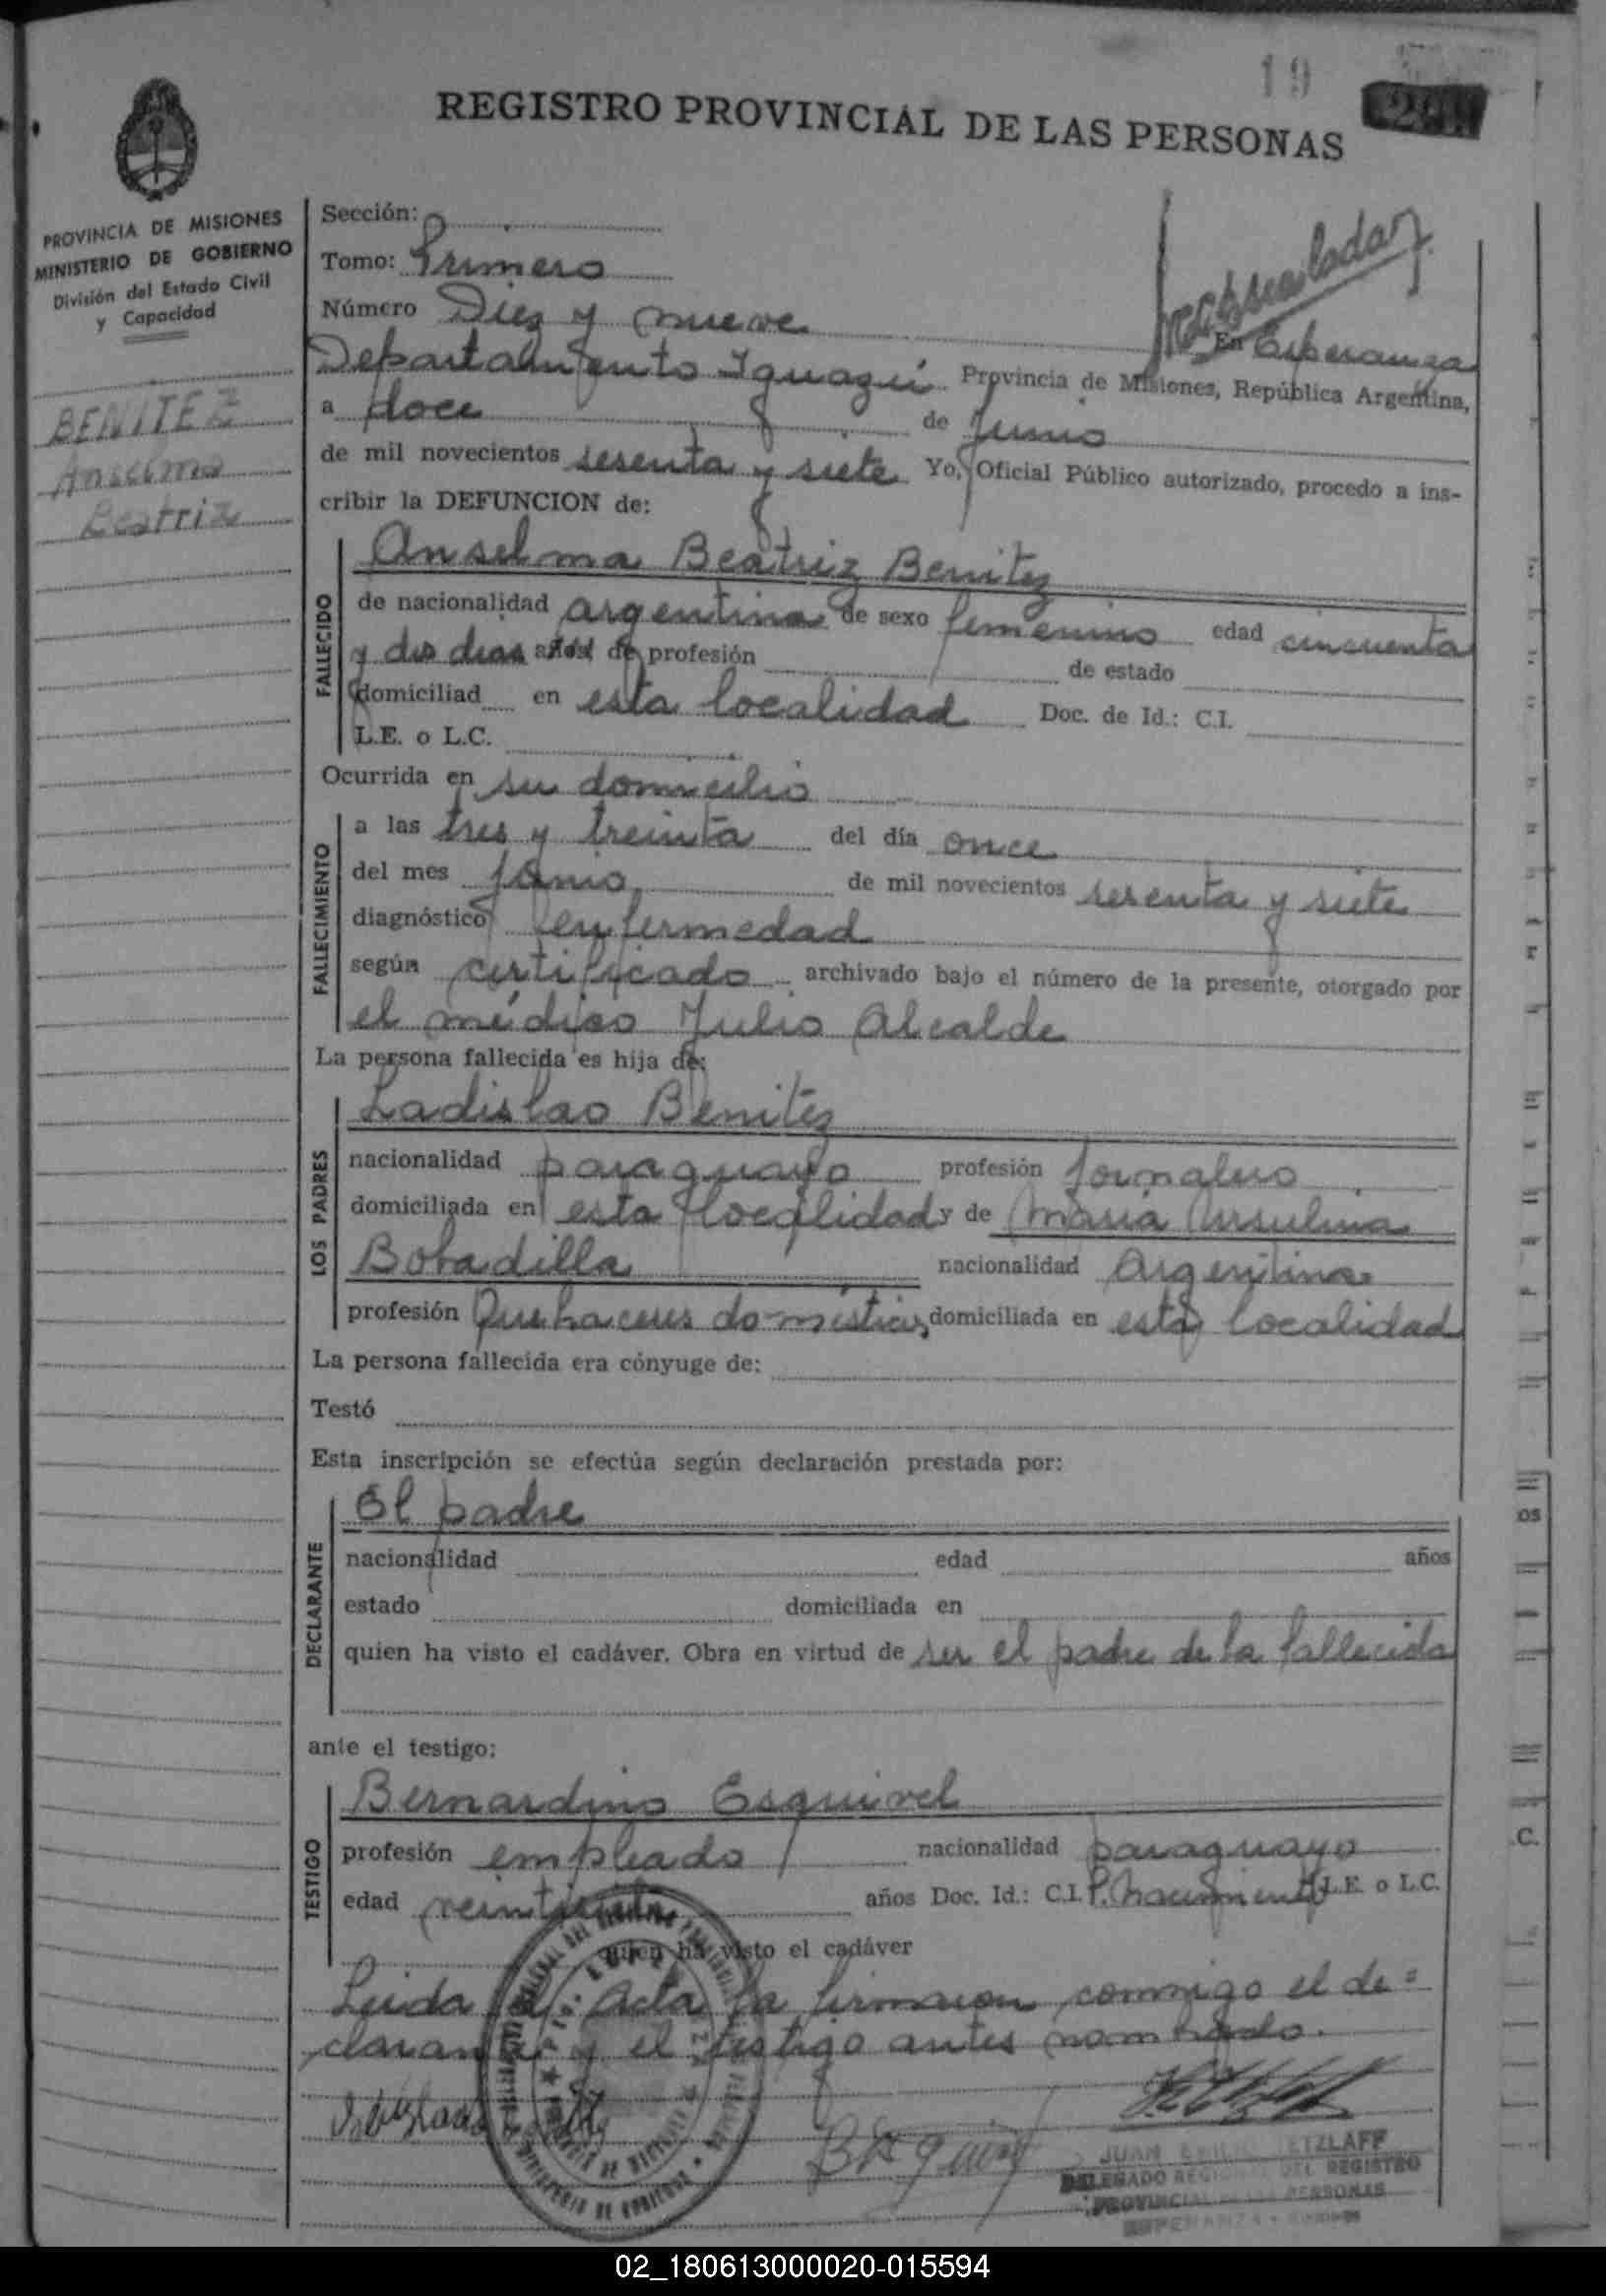 19
REGISTRO PROVINCIAL DE LAS PERSONAS
PROVINCIA DE MISIONES
MINISTERIO DE GOBIERNO
División del Estado Civil
y Capacidad
BENITEZ
Anselma
Beatriz
Sección:
Tomo: Primero
Número Diez y nueve En Esperanza
Departamento Iguazú Provincia de Misiones, República Argentina,
a doce de Junio
de mil novecientos sesenta y siete Yo, Oficial Público autorizado, procedo a ins-
cribir la DEFUNCION de:
FALLECIDO
Anselma Beatriz Benitez
de nacionalidad argentina de sexo femenino edad cincuenta
y dos dias años de profesión de estado
domiciliad en esta localidad Doc. de Id.: C.I.
L.E. o L.C.
Ocurrida en su domicilio
FALLECIMIENTO
a las tres y treinta del día once
del mes Junio de mil novecientos sesenta y siete
diagnóstico enfermedad
según certificado archivado bajo el número de la presente, otorgado por
el médico Julio Alcalde
La persona fallecida es hija de:
LOS PADRES
Ladislao Benitez
nacionalidad paraguayo profesión Jornalero
domiciliada en esta localidad y de Maria Ursulina
Bobadilla nacionalidad Argentina
profesión Quehaceres domésticos domiciliada en esta localidad
La persona fallecida era cónyuge de:
Testó
Esta inscripción se efectúa según declaración prestada por:
DECLARANTE
El padre
nacionalidad edad años
estado domiciliada en
quien ha visto el cadáver. Obra en virtud de ser el padre de la fallecida
ante el testigo:
TESTIGO
Bernardino Esquivel
profesión empleado nacionalidad paraguayo
edad años Doc. Id.: C.I. P. nacimiento L.E. o L.C.
quien ha visto el cadáver
Leida el Acta la firmaron conmigo el de=
clarante y el testigo antes nombrado.
JUAN EMILIO RETZLAFF
DELEGADO REGIONAL DEL REGISTRO
PROVINCIAL DE LAS PERSONAS
ESPERANZA - Misiones
02_180613000020-015594